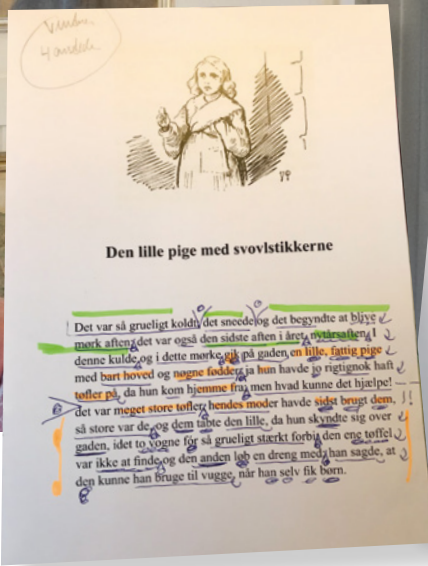 Den lille pige med svovlstikkerne
Det var så grueligt koldt; det sneede og det begyndte at blive
mørk aften; det var også den sidste aften i året, nytårsaften. I
denne kulde og i dette mørke gik på gaden en lille, fattig pige
med bart hoved og nøgne fødder; ja hun havde jo rigtignok haft
tøfler på, da hun kom hjemme fra; men hvad kunne det hjælpe!
det var meget store tøfler, hendes moder havde sidst brugt dem,
så store var de, og dem tabte den lille, da hun skyndte sig over
gaden, idet to vogne fór så grueligt stærkt forbi; den ene tøffel
var ikke at finde og den anden løb en dreng med; han sagde, at
den kunne han bruge til vugge, når han selv fik børn.